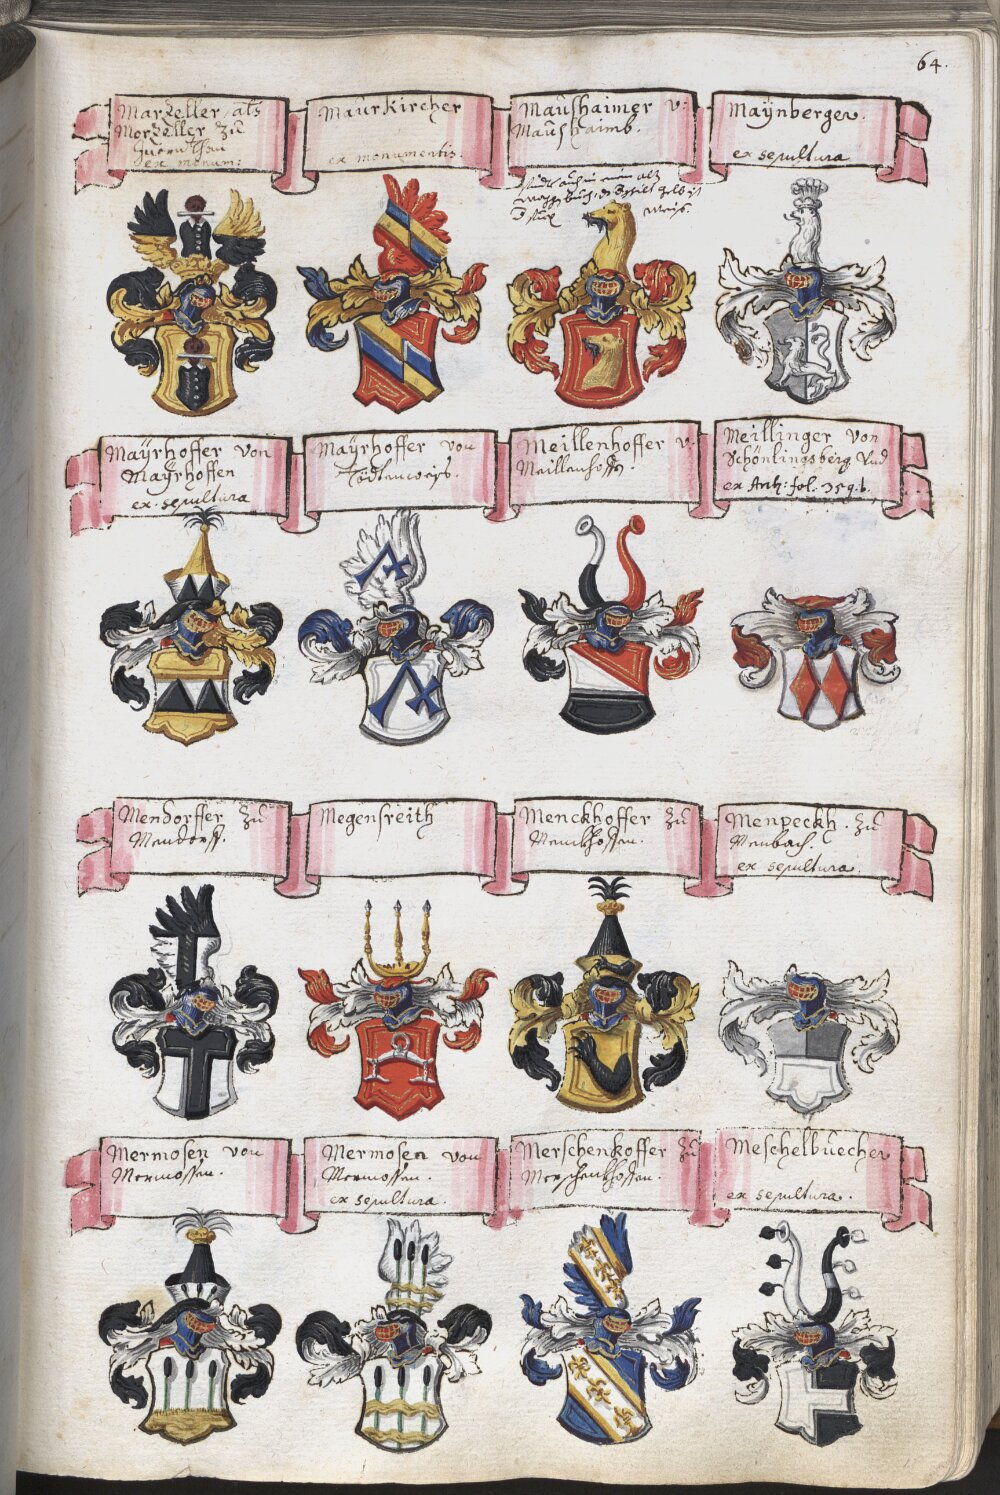 64.
Marzeller als
Morzeller zu
ex monum:
Maurkircher
ex monumentis.
Maushaimer v:
Maushaimb.
Maÿnberger.
ex sepultura
Maÿrhoffer von
Maÿrhoffen
ex sepultura
Maÿrhoffer von
Todtenweis.
Meillenhoffer v:
Meillenhoffen.
Meillinger von
Schönlingsberg Und
ex Anh: fol. 359.b.
Mendorffer zu
Mendorff.
Megensreith
Menckhoffer zu
Menckhoffen.
Menpeckh. zu
Menbach.
ex sepultura.
Mermosen von
Mermossen.
Mermosen von
Mermossen.
ex sepultura.
Merschenhoffer zu
Merschenhoffen.
Meschelbuecher
ex sepultura.